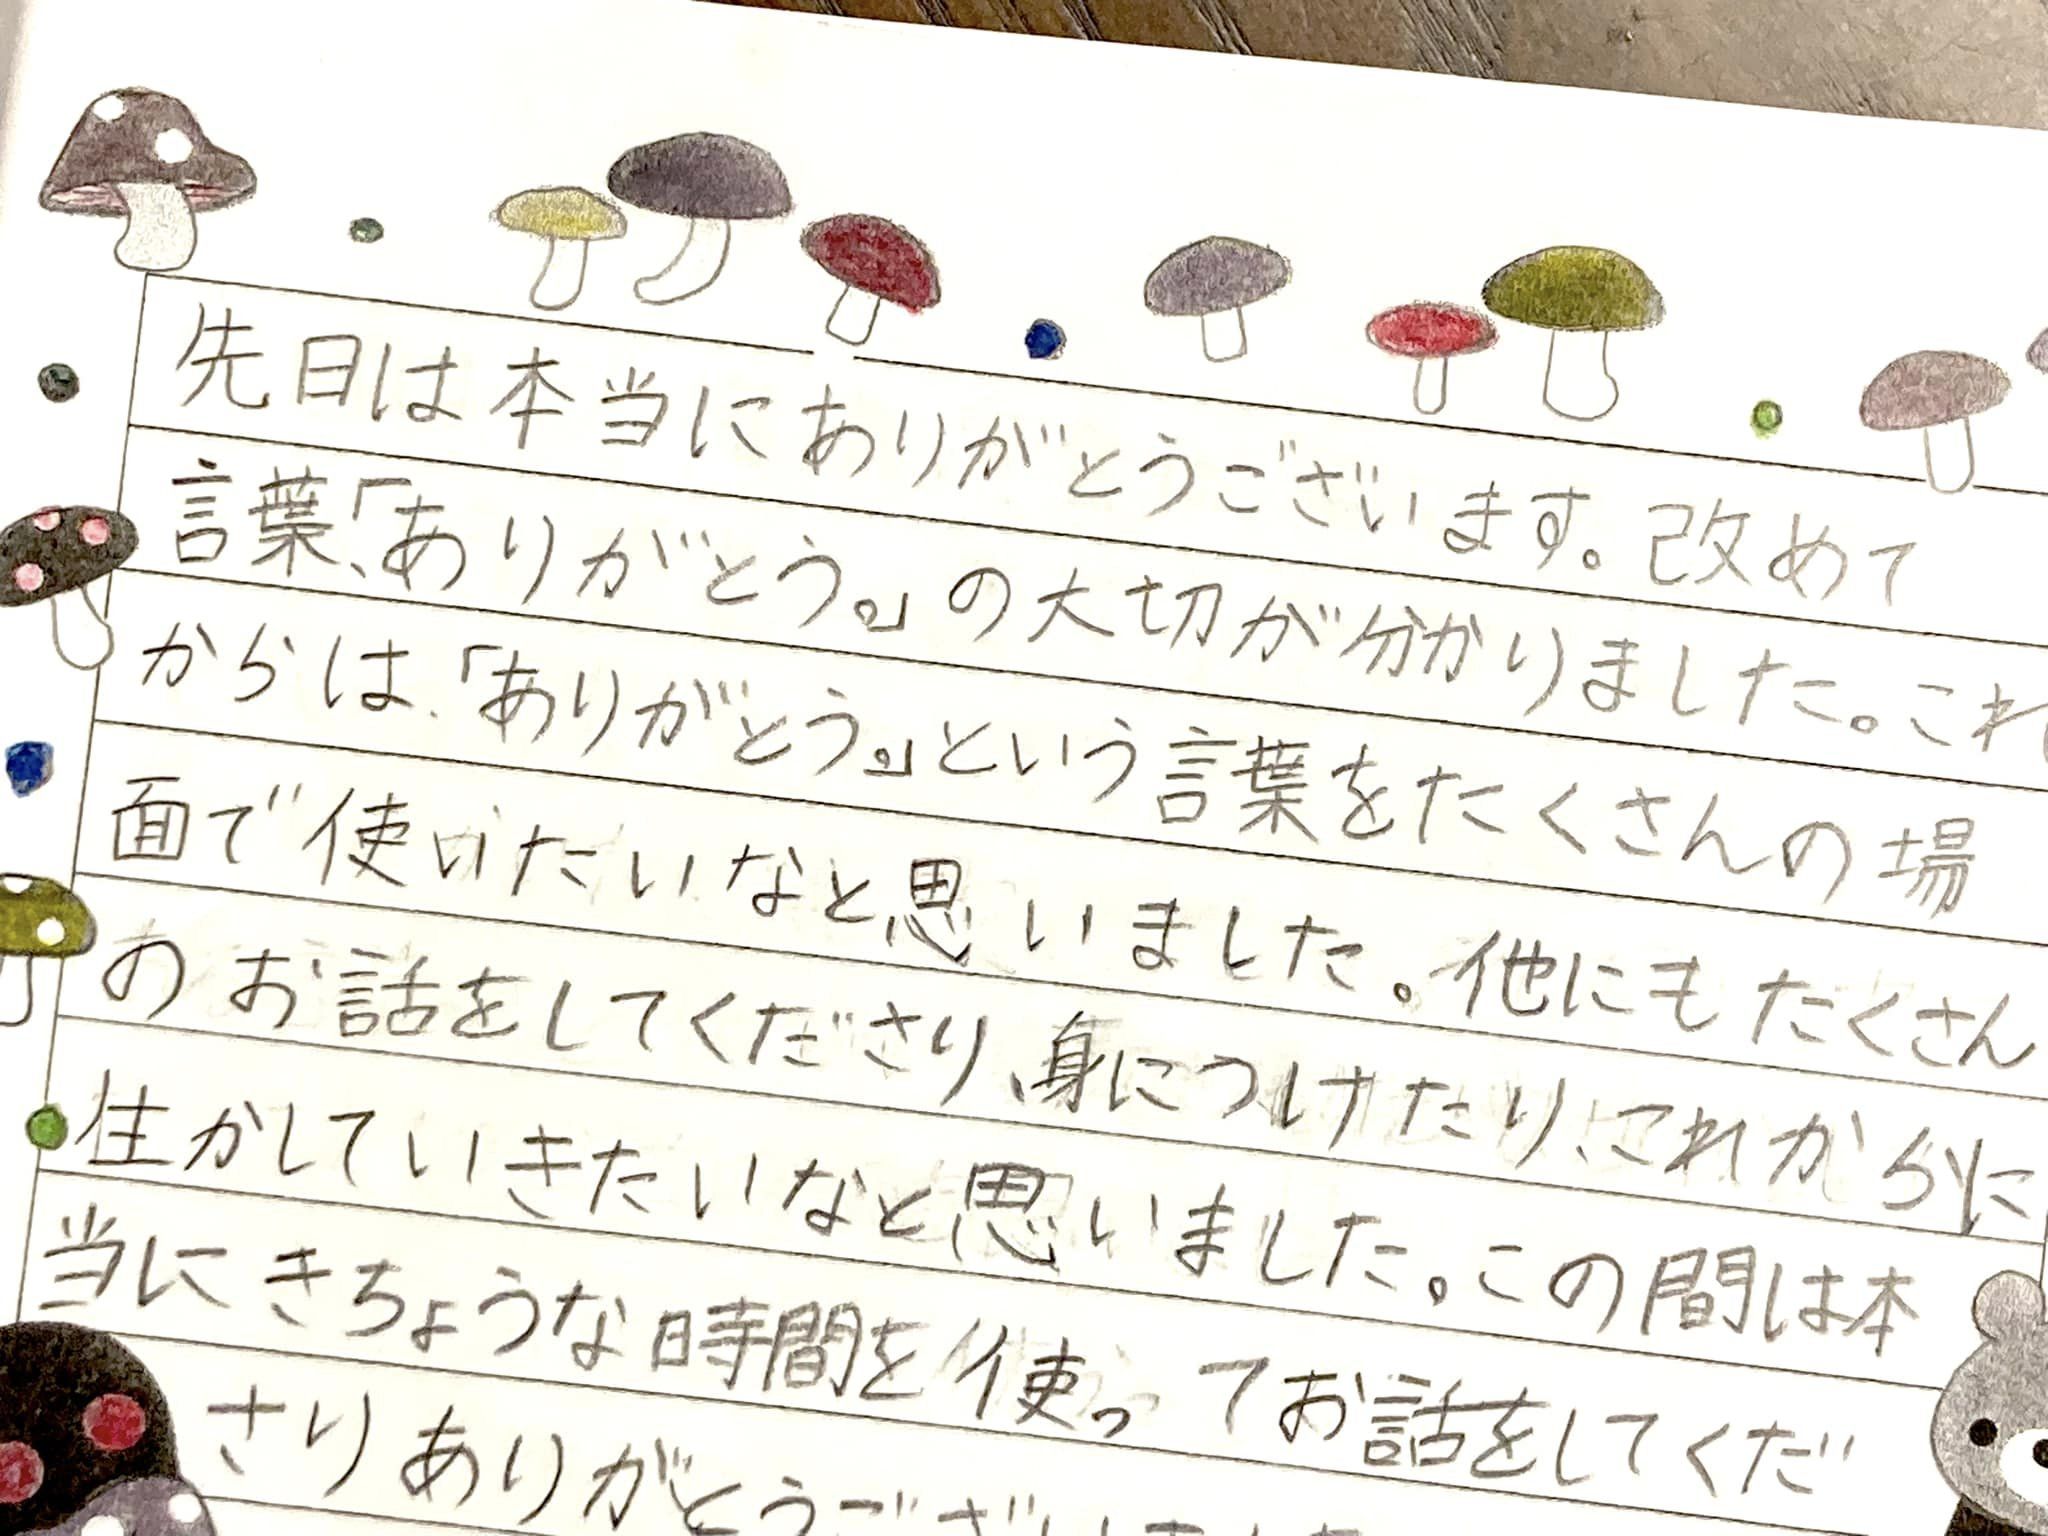 先日は本当にありがとうございます。改めて
言葉、「ありがとう。」の大切が分かりました。これ
からは、「ありがとう。」という言葉をたくさんの場
面で使いたいなと思いました。他にもたくさん
のお話をしてくださり、身につけたり、これからに
生かしていきたいなと思いました。この間は本
当にきちょうな時間を使ってお話をしてくだ
さりありがとうございました